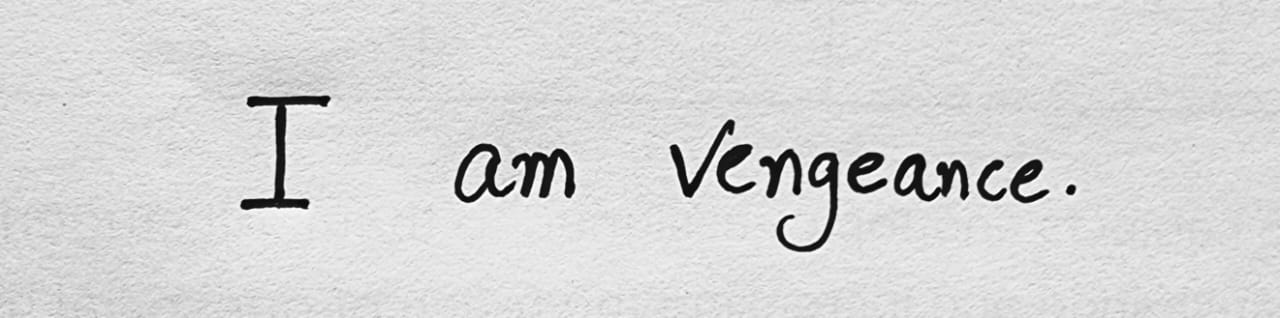 I am vengeance.